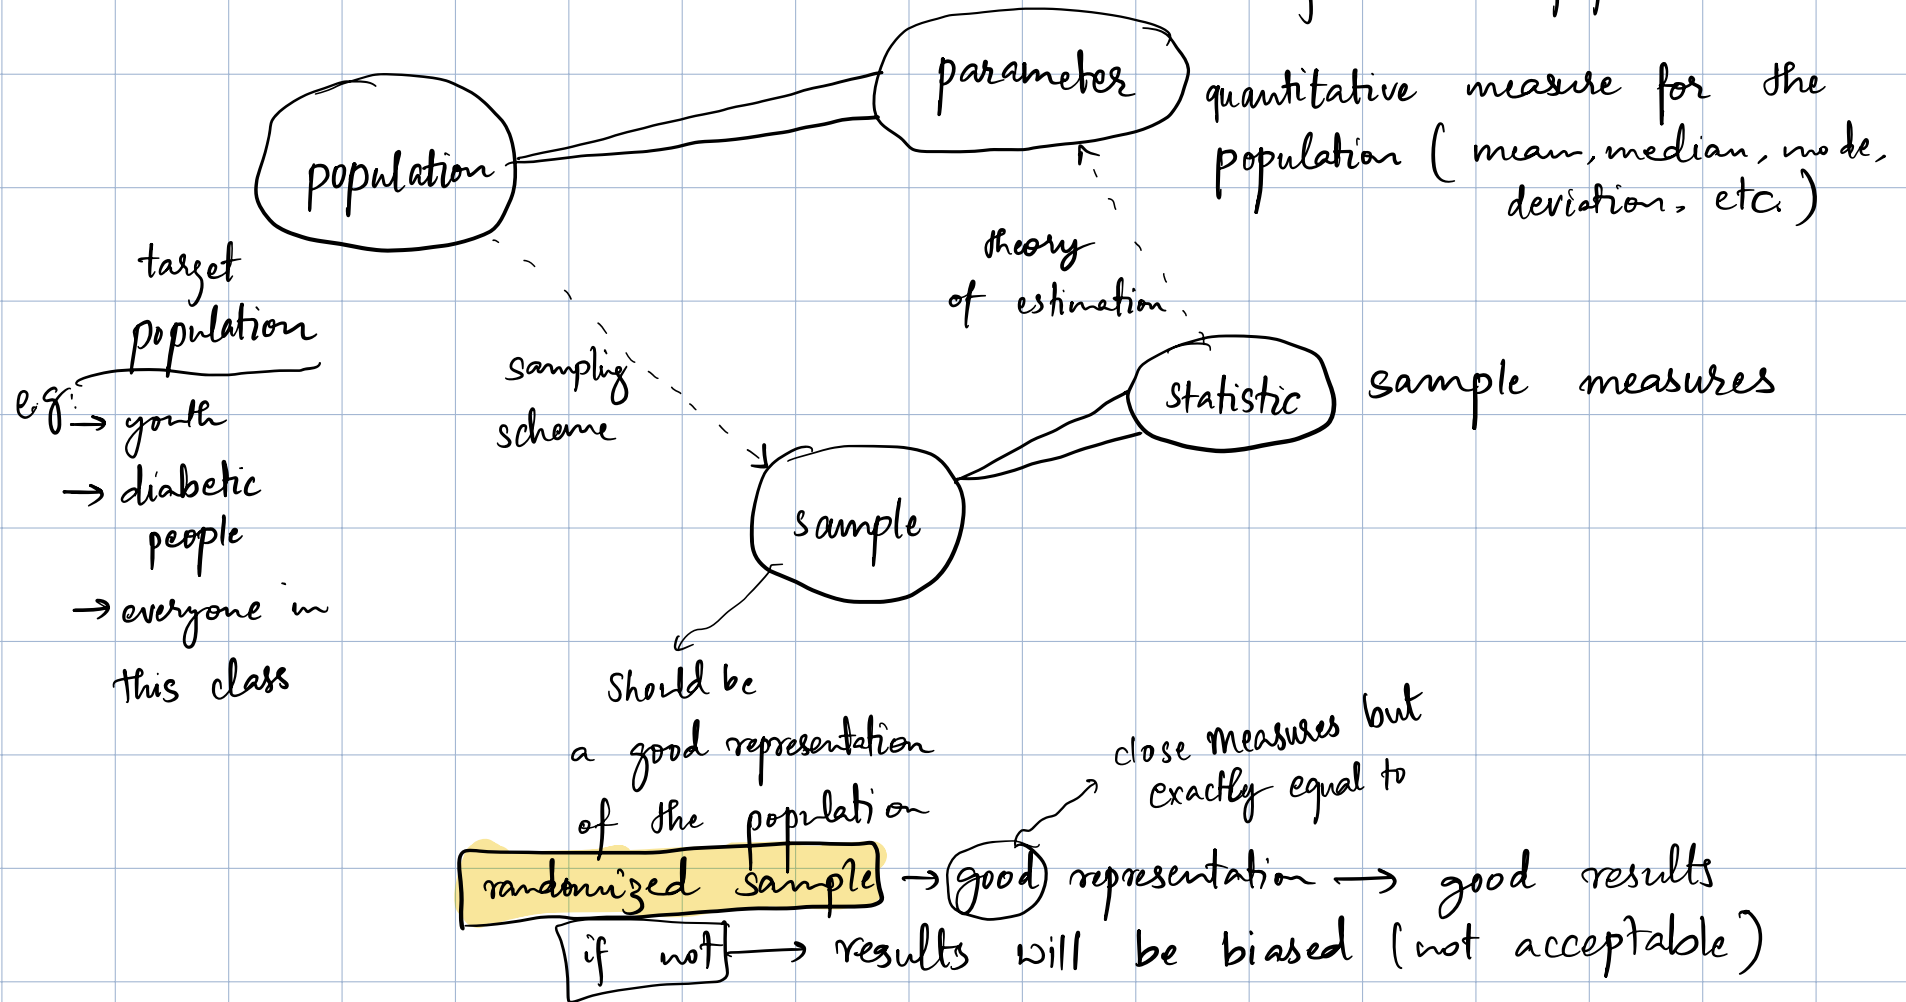 parameter
quantitative measure for the
population ( mean, median, mode,
deviation, etc. )
population
target
population
e.g:
→ youth
→ diabetic
people
→ everyone in
this class
theory
of estimation
sampling
scheme
statistic
sample measures
sample
should be
a good representation
of the population
close measures but
exactly equal to
randomized sample → good representation → good results
if not → results will be biased (not acceptable)